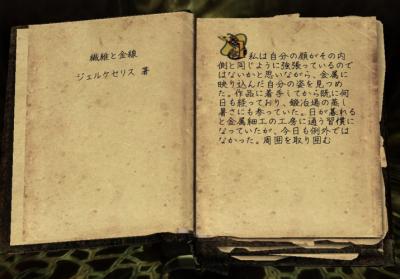 繊維と金線
ジェルケセリス 著
私は自分の顔がその内
側と同じように強張っているので
はないかと思いながら、金属に
映り込んだ自分の姿を見つめ
た。作品に着手してから既に何
日も経っており、鍛冶場の蒸し
暑さにも参っていた。日が暮れる
と金属細工の工房に通う習慣に
なっていたが、今日も例外では
なかった。周囲を取り囲む